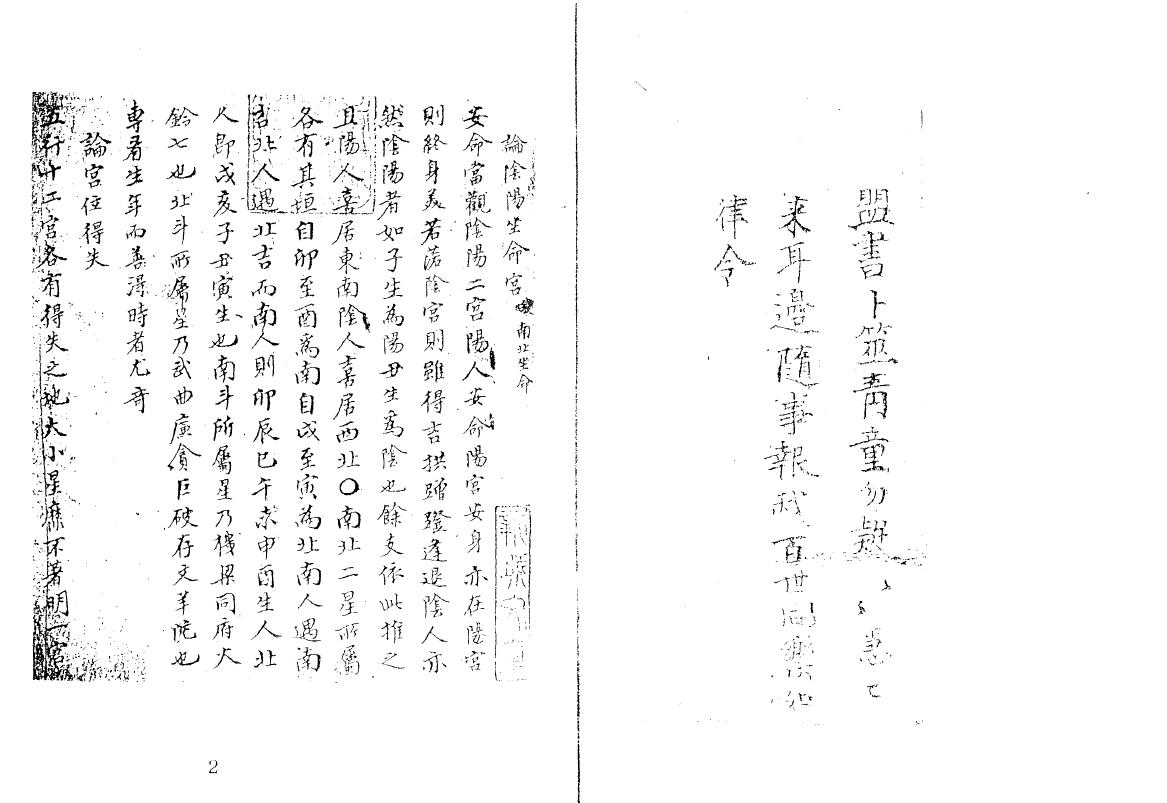 盟書卜筮靑童勿疑
来耳邉随事報我百世同樂如
律令
論陰陽生命宮
南北生命
安命當觀陰陽二宮陽人安命陽宮安身亦在陽宮
則終身美若落陰宮則雖得吉拱蹭蹬逢退陰人亦
然陰陽者如子生為陽丑生為陰也餘支依此推之
且陽人喜居東南陰人喜居西北〇南北二星所屬
各有其垣自卯至酉為南自戌至寅為北南人遇南
吉北人遇北吉而南人則卯辰巳午未申酉生人北
人即戌亥子丑寅生也南斗所屬星乃機梁同府火
鈴七也北斗所屬星乃武曲廉貪巨破存文羊陀也
專看生年而善得時者尤奇
論宮位得失
五行十二宮各有得失之地大小星
不著明一宮
2